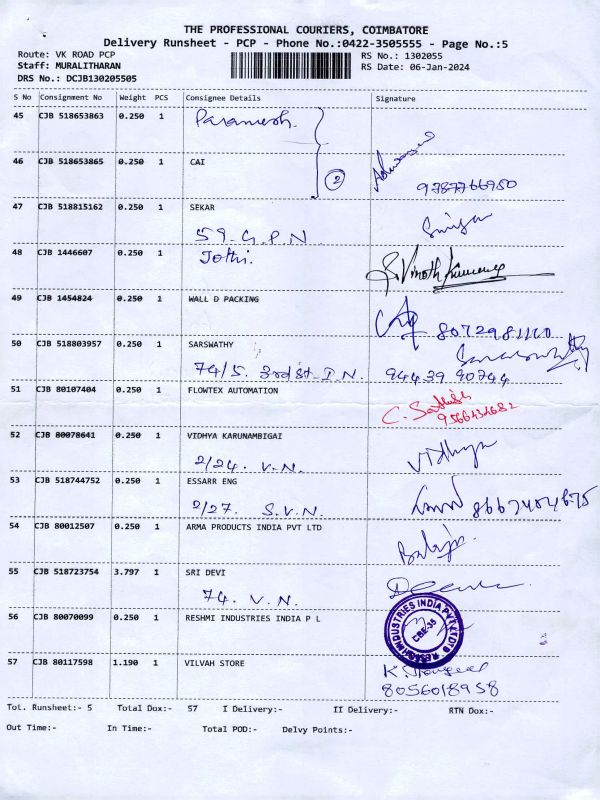 THE PROFESSIONAL COURIERS, COIMBATORE
Delivery Runsheet - PCP - Phone No.:0422-3505555 - Page No.:5
Route: VK ROAD PCP RS No.: 1302055
Staff: MURALITHARAN RS Date: 06-Jan-2024
DRS No.: DCJB130205505
S No Consignment No Weight PCS Consignee Details Signature
45 CJB 518653863 0.250 1 Paramesh.
46 CJB 518653865 0.250 1 CAI
2 9787766950
47 CJB 518815162 0.250 1 SEKAR
59-G.P.N
48 CJB 1446607 0.250 1 Jothi. S. Vinoth Kumar
49 CJB 1454824 0.250 1 WALL D PACKING
8072981110
50 CJB 518803957 0.250 1 SARSWATHY
74/5. 3rd st-I.N. 94439 90744
51 CJB 80107404 0.250 1 FLOWTEX AUTOMATION
C. Sathish
52 CJB 80078641 0.250 1 VIDHYA KARUNAMBIGAI
2/24. V.N. Vidhya
53 CJB 518744752 0.250 1 ESSARR ENG
2/27. S.V.N. 8667404675
54 CJB 80012507 0.250 1 ARMA PRODUCTS INDIA PVT LTD
Balaji
55 CJB 518723754 3.797 1 SRI DEVI
74. V.N.
56 CJB 80070099 0.250 1 RESHMI INDUSTRIES INDIA P L
RESHMI INDUSTRIES INDIA PVT LTD
CBE-35
57 CJB 80117598 1.190 1 VILVAH STORE
8056018958
Tot. Runsheet:- 5 Total Dox:- 57 I Delivery:- II Delivery:- RTN Dox:-
Out Time:- In Time:- Total POD:- Delvy Points:-